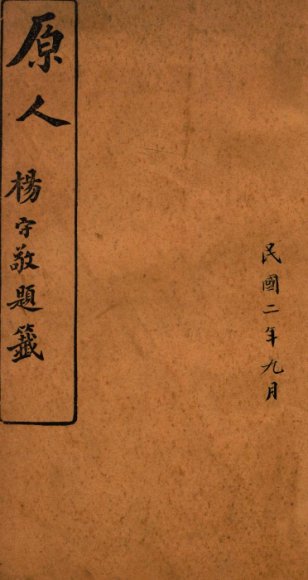 民國二年九月
原人
楊守敬題籤